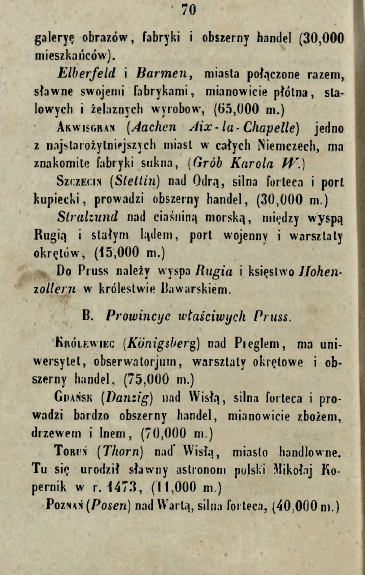 70
galeryę obrazów, fabryki i obszerny handel (30,000
mieszkańców).
Elberfeld i Barmen, miasta połączone razem,
sławne swojemi fabrykami, mianowicie płótna, sta-
lowych i żelaznych wyrobow, (65,000 m.)
AKWISGRAN (Aachen Aix-la-Chapelle) jedno
z najstarożytniejszych miast w całych Niemczech, ma
znakomite fabryki sukna, (Grób Karola W.)
SZCZECIN (Stettin) nad Odrą, silna forteca i port
kupiecki, prowadzi obszerny handel, (30,000 m.)
Stralzund nad ciaśniną morską, między wyspą
Rugią i stałym lądem, port wojenny i warsztaty
okrętów, (15,000 m.)
Do Pruss należy wyspa Rugia i księstwo Hohen-
zollern w królestwie Bawarskiem.
B. Prowincye właściwych Pruss.
KRÓLEWIEC (Königsberg) nad Preglem, ma uni-
wersytet, obserwatorjum, warsztaty okrętowe i ob-
szerny handel, (75,000 m.)
GDAŃSK (Danzig) nad Wisłą, silna forteca i pro-
wadzi bardzo obszerny handel, mianowicie zbożem,
drzewem i lnem, (70,000 m.)
TORUŃ (Thorn) nad Wisłą, miasto handlowne.
Tu się urodził sławny astronom polski Mikołaj Ko-
pernik w r. 1473, (11,000 m.)
POZNAŃ (Posen) nad Wartą, silna forteca, (40,000 m.)